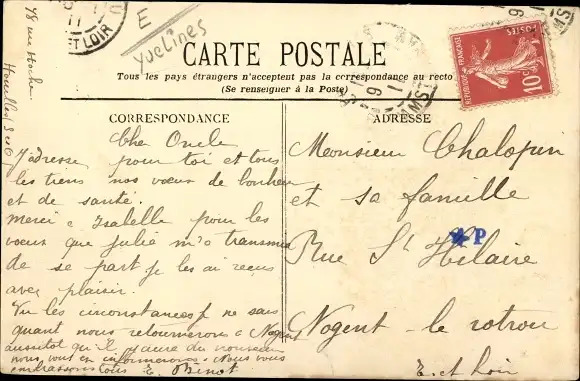 E
yvelines
ET LOIR
78 rue Hoche
Houilles S et O
CARTE POSTALE
Tous les pays étrangers n'acceptent pas la correspondance au recto
(Se renseigner à la Poste)
REPUBLIQUE FRANÇAISE
10c
CORRESPONDANCE
Cher Oncle
J'adresse pour toi et tous
les tiens nos vœux de bonheur
et de santé.
Merci a Isabelle pour les
vœux que Julie m'a transmis
de se part je les ai reçus
avec plaisir.
Vu les circonstances je ne sais
quant nous retournerons a Nogent
aussitot qu'il y aura du nouveau
nous vous en informerons. Nous vous
embrassons tous E. Binot
ADRESSE
Monsieur Chalopin
et sa famille
Rue St Hilaire
P
Nogent-le rotrou
E. et Loir